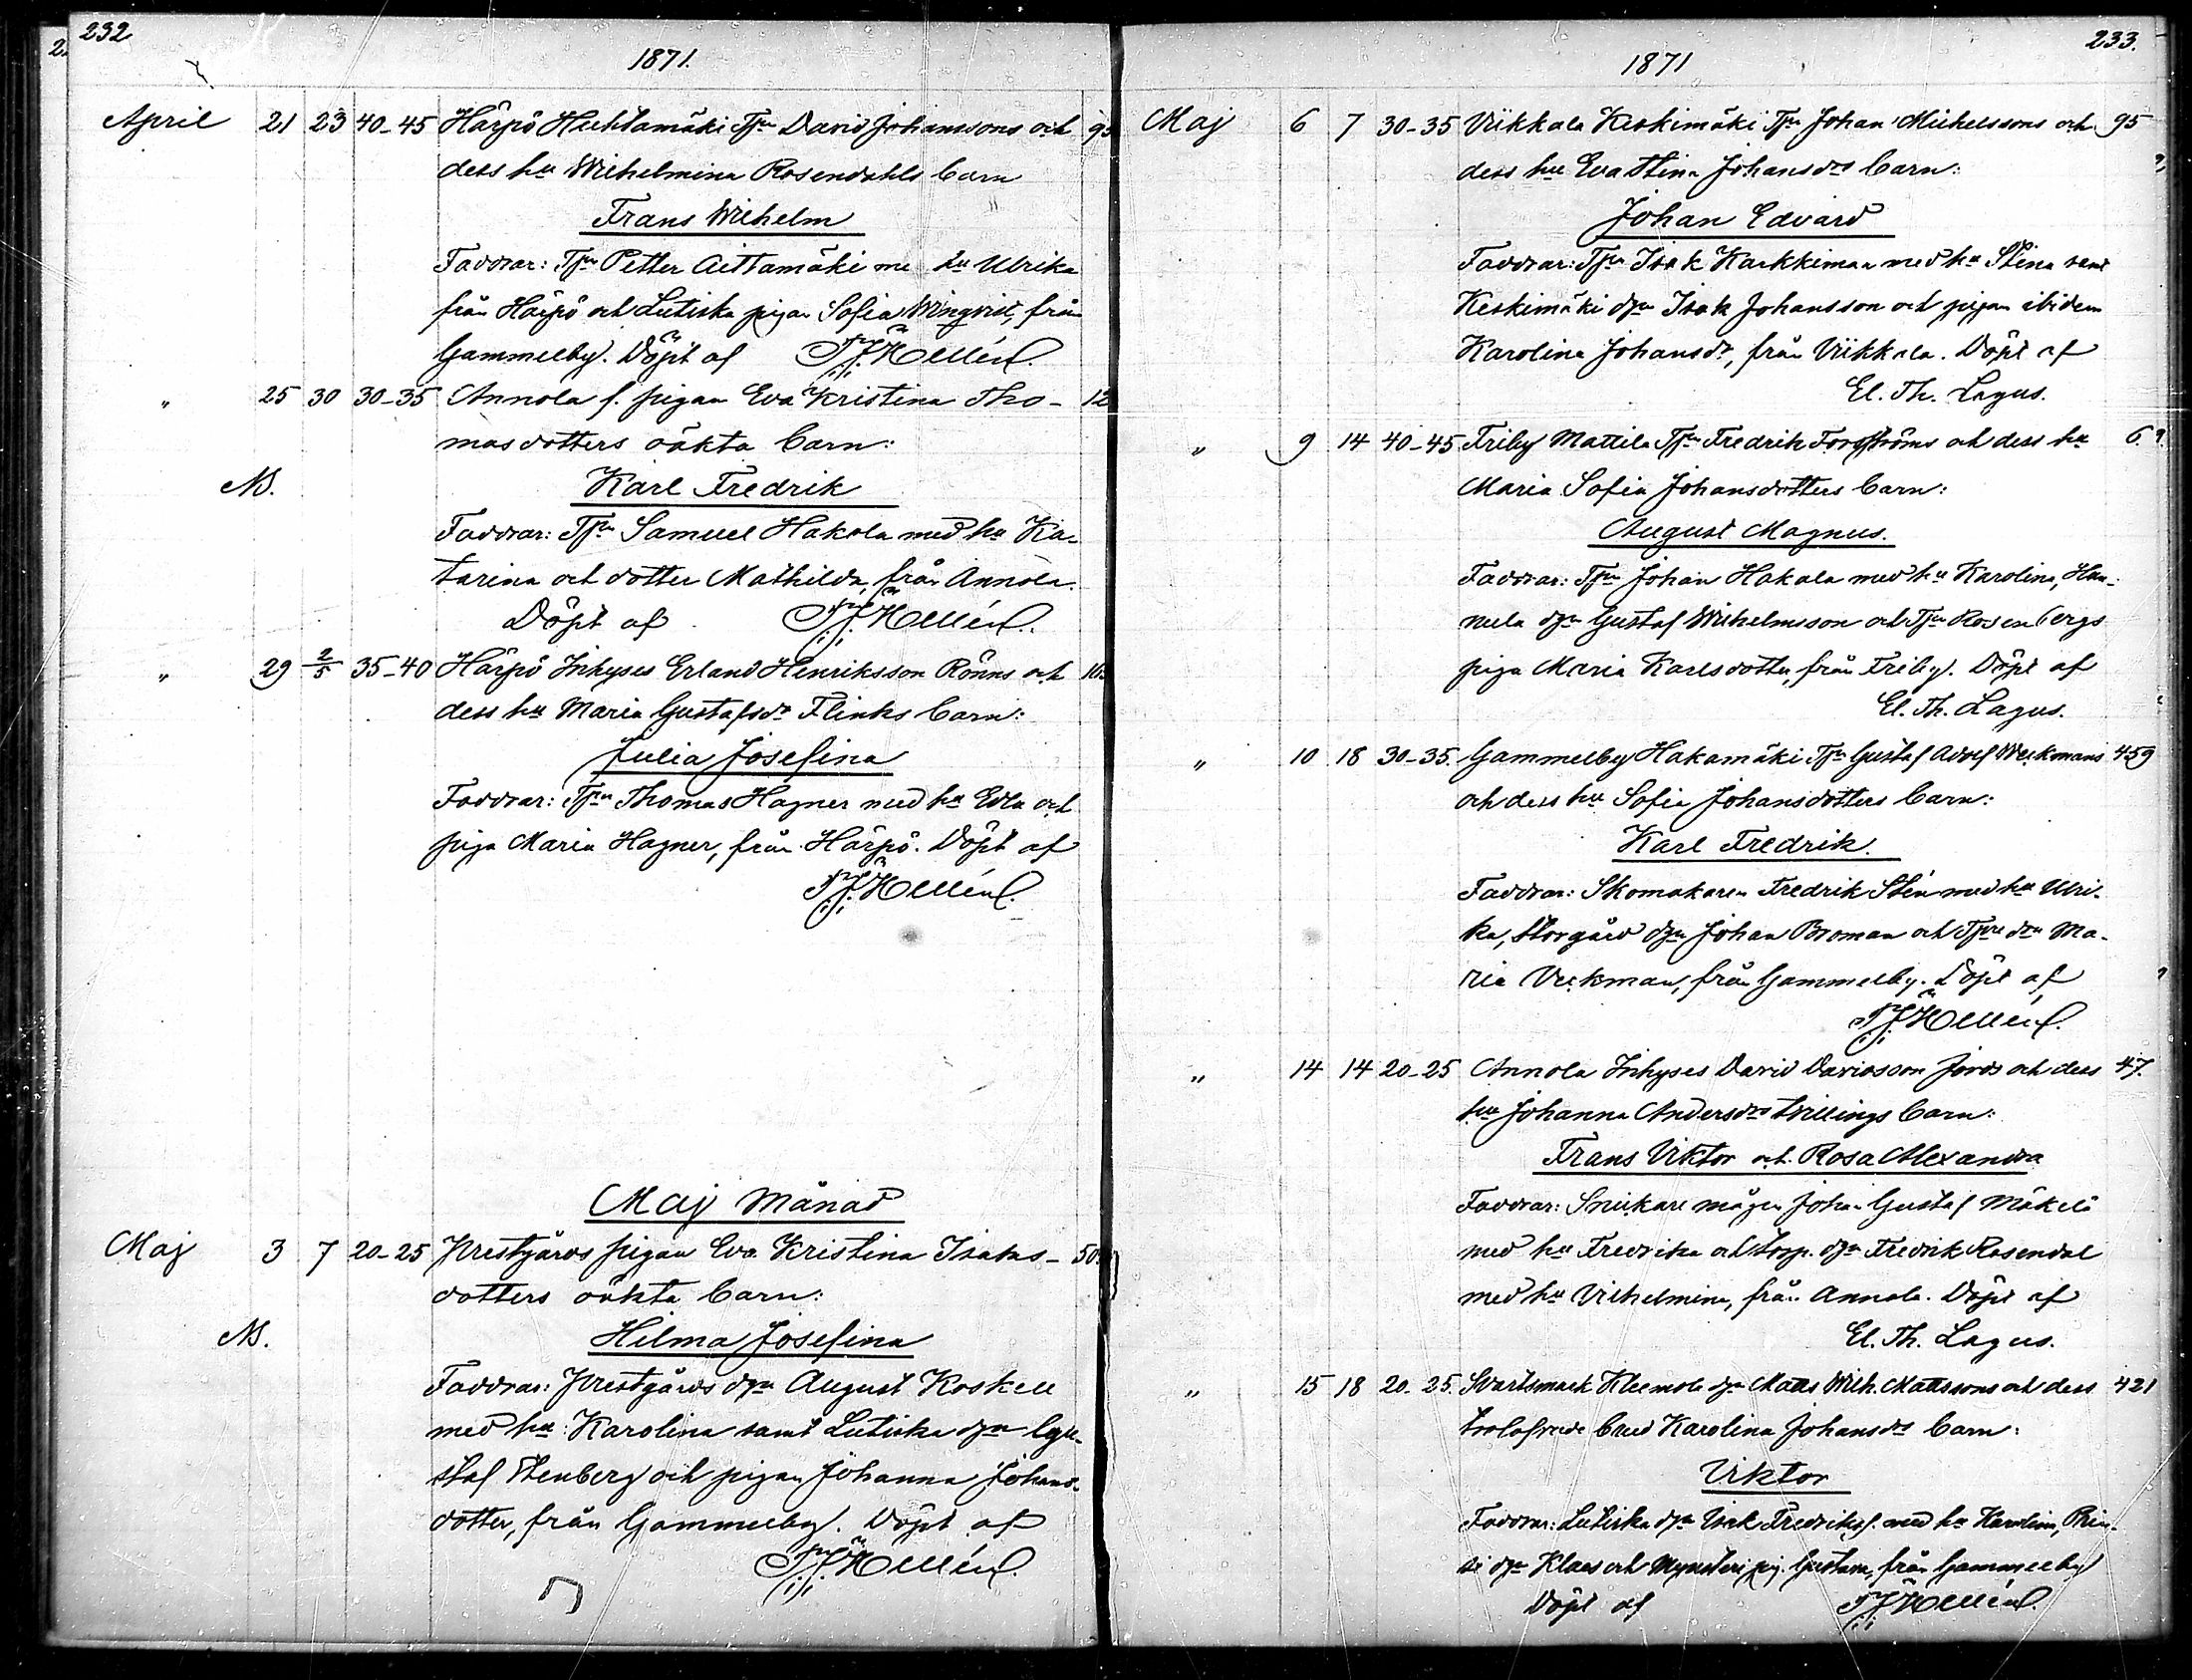 232
1871.
April 21 23 40-45 Härpö Huhtamäki Tpn David Johanssons och
dess hu Wilhelmina Rosendahls barn
Frans Wilhelm
Faddrar: Tpn Petter Aittamäki me hu Ulrika
från Härpö och Lutiska pigan Sofia Winqvist, från
Gammelby. Döpt af Hellén.
" 25 30 30-35 Annola f. pigan Eva Kristina Tho- 12
masdotters oäkta barn:
NB. Karl Fredrik
Faddrar: Tpn Samuel Hakola med hu Ka-
tarina och dotter Mathilda, från Annola.
Döpt af Hellén.
" 29 2/5 35-40 Härpö Inhyses Erland Henriksson Rönns och
dess hu Maria Gustafsdr Flinks barn:
Julia Josefina
Faddrar: Tpn Thomas Hagner med hu Edla och
piga Maria Hagner, från Härpö. Döpt af
Hellén.
Maj Månad
Maj 3 7 20-25 Prestgårds pigan Eva Kristina Isaks- 50
dotters oäkta barn:
NB. Hilma Josefina
Faddrar: Prestgårds dgn August Koskell
med hu Karolina samt Lutiska dgn Gu-
staf Stenberg och pigan Johanna Johans-
dotter, från Gammelby. Döpt af
Hellén.
233.
1871
Maj 6 7 30-35 Viikkala Keskimäki Tpn Johan Michelssons och 95
dess hu Eva Stina Johansdrs barn:
Johan Edvard
Faddrar: Tpn Isak Karkkiman med hu Stina samt
Keskimäki dgn Isak Johansson och pigan ibidem
Karolina Johansdr, från Viikkala. Döpt af
El. Th. Lagus.
" 9 14 40-45 Friby Mattila Tpn Fredrik Forsströms och dess hu 6
Maria Sofia Johansdotters barn:
August Magnus.
Faddrar: Tpn Johan Hakala med hu Karolina, Han-
nula dgn Gustaf Wilhelmsson och Tpn Rosenbergs
piga Maria Karlsdotter, från Friby. Döpt af
El. Th. Lagus.
" 10 18 30-35. Gammelby Hakamäki Tpn Gustaf Adolf Weckmans 459
och dess hu Sofia Johansdotters barn:
Karl Fredrik.
Faddrar: Skomakaren Fredrik Stén med hu Ulri-
ka, Storgård dgn Johan Broman och Tpre dtn Ma-
ria Veckman, från Gammelby. Döpt af
Hellén.
" 14 14 20-25 Annola Inhyses David Davidsson Jords och dess 47.
hu Johanna Andersdrs tvillings barn:
Frans Viktor och Rosa Alexandra
Faddrar: Snickare mågen Johan Gustaf Mäkelä
med hu Fredrika och torp. dgn Fredrik Rosendal
med hu Vilhelmina, från Annola. Döpt af
El. Th. Lagus.
" 15 18 20-25. Svartsmark Kleemola dgn Matts Wilh. Mattssons och dess 421
trolofvade brud Karolina Johansdr barn:
Viktor
Faddrar: Lutiska dgn Isak Fredrikss. med hu Karolina, Prin-
si dgn Klaes och pig. Gustava, från Gammelby
Döpt af Hellén.